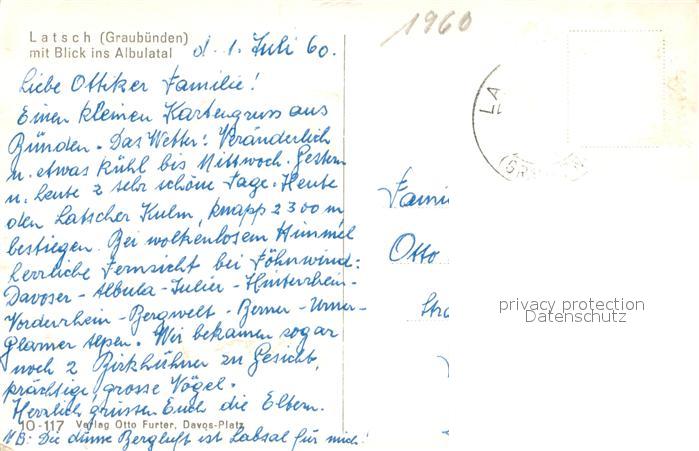 Latsch (Graubünden)
mit Blick ins Albulatal
d. 1. Juli 60.
1960
Liebe Ottiker Familie!
Einen kleinen Kartengruss aus
Bünden. Das Wetter: Veränderlich
u. etwas kühl bis Mittwoch. Gestern
u. heute 2 sehr schöne Tage. Heute
den Latscher Kulm, knapp 2300 m
bestiegen. Bei wolkenlosem Himmel
herrliche Fernsicht bei Föhnwind:
Davoser - Albula - Julier - Hinterrhein-
Vorderrhein - Bergwelt - Berner - Urner-
Glarner Alpen. Wir bekamen sogar
noch 2 Birkhühner zu Gesicht,
prächtige, grosse Vögel.
Herzlich grüssen Euch die Eltern.
10-117 Verlag Otto Furter, Davos-Platz
NB: Die dünne Bergluft ist Labsal für mich!
LA
(GR
Fami
Otto
Stra
privacy protection
Datenschutz